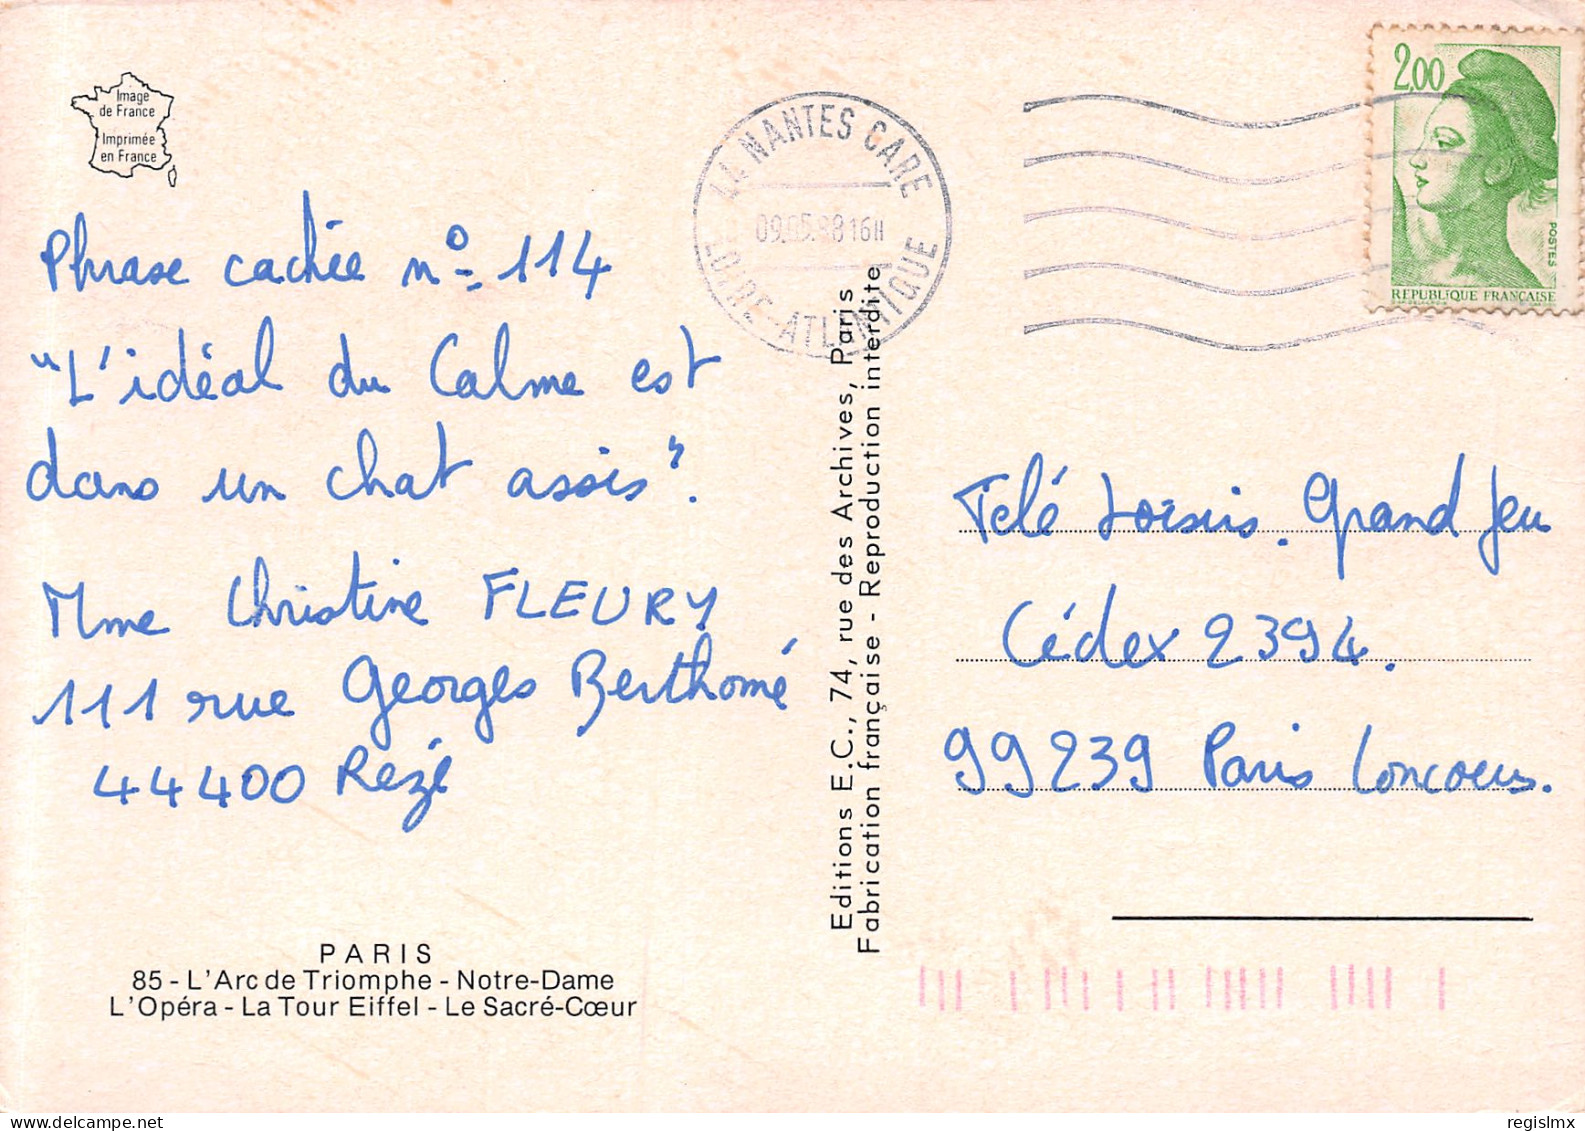 Image
de France
Imprimée
en France
Phrase cachée nº 114
"L'idéal du Calme est
dans un chat assis".
Mme Christine FLEURY
111 rue Georges Berthomé
44400 Rezé
PARIS
85 - L'Arc de Triomphe - Notre-Dame
L'Opéra - La Tour Eiffel - Le Sacré-Cœur
Editions E.C., 74, rue des Archives, Paris
Fabrication française - Reproduction interdite
44 NANTES CARE
09.05.88 16H
LOIRE-ATLANTIQUE
2,00
POSTES
REPUBLIQUE FRANÇAISE
Télé Loisirs. Grand Jeu
Cédex 2394.
99239 Paris Concours.
Delcampe.net
regislmx